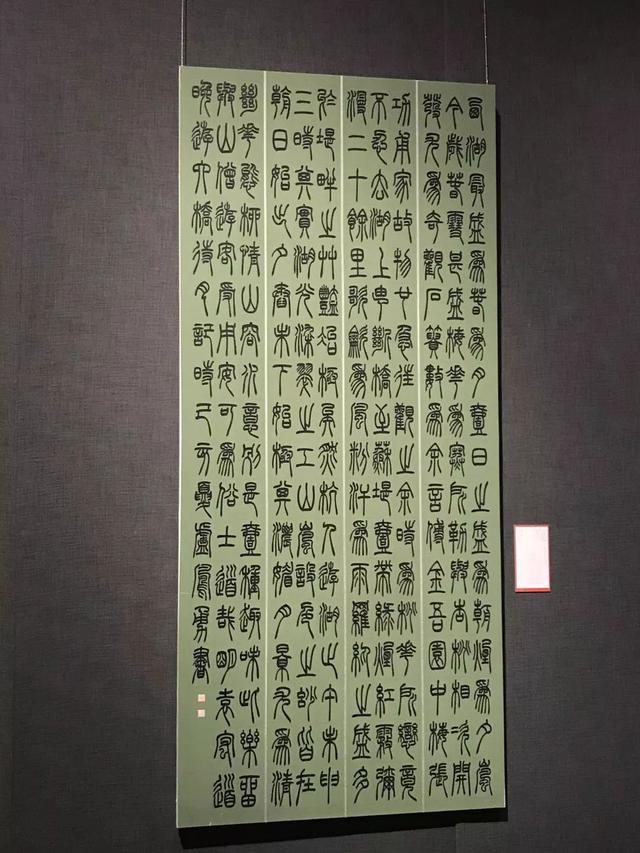 西湖最盛爲春爲月壹日之盛爲朝煙爲夕嵐
今歲春雪甚盛梅花爲寒所勒與杏桃相次開
發尤爲奇觀石簣數爲余言傅金吾園中梅張
功甫家故物也急往觀之余時爲桃花所戀竟
不忍去湖上由斷橋至蘇堤壹帶綠煙紅霧彌
漫二十餘里歌吹爲風粉汗爲雨羅紈之盛多
於堤畔之艸豔冶極矣然杭人遊湖止午未申
三時其實湖光染翠之工山嵐設色之妙皆在
朝日始出夕舂未下始極其濃媚月景尤爲清
幽花態柳情山容水意別是壹種趣味此樂留
與山僧遊客受用安可爲俗士道哉明袁宏道
晚遊六橋待月記時己亥夏盧鳳勇書